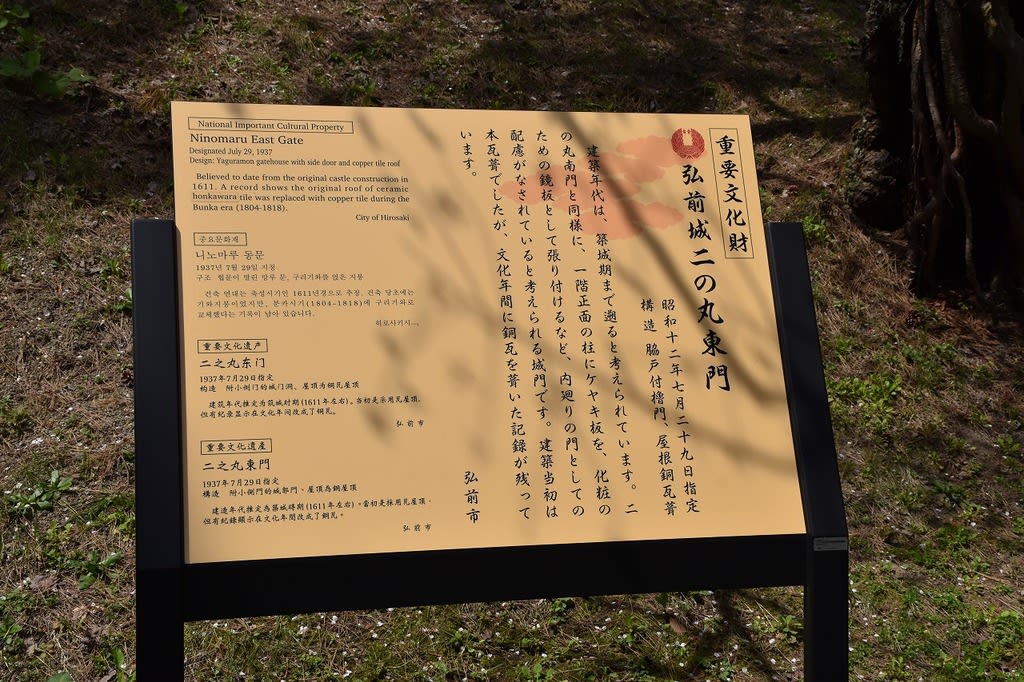 National Important Cultural Property
Ninomaru East Gate
Designated July 29, 1937
Design: Yaguramon gatehouse with side door and copper tile roof
Believed to date from the original castle construction in
1611. A record shows the original roof of ceramic
honkawara tile was replaced with copper tile during the
Bunka era (1804-1818).
City of Hirosaki
중요문화재
니노마루 동문
1937년 7월 29일 지정
구조 협문이 딸린 망루 문, 구리기와를 얹은 지붕
건축 연대는 축성시기인 1611년경으로 추정. 건축 당초에는
기와지붕이었지만, 분카시기(1804-1818)에 구리기와로
교체했다는 기록이 남아 있습니다.
히로사키시
重要文化遗产
二之丸东门
1937年7月29日指定
构造 附小侧门的城门洞、屋顶为铜瓦屋顶
建筑年代推定为筑城时期(1611年左右)。当初是采用瓦屋顶,
但有纪录显示在文化年间改成了铜瓦。
弘前市
重要文化遺産
二之丸東門
1937年7月29日指定
構造 附小側門的城郭門、屋頂為銅瓦屋頂
建造年代推定為築城時期(1611年左右)。當初是採用瓦屋頂,
但有紀錄顯示在文化年間改成了銅瓦。
弘前市
重要文化財
弘前城二の丸東門
昭和十二年七月二十九日指定
構造 脇戸付櫓門、屋根銅瓦葺
建築年代は、築城期まで遡ると考えられています。二
の丸南門と同様に、一階正面の柱にケヤキ板を、化粧の
ための鏡板として張り付けるなど、内廻りの門としての
配慮がなされていると考えられる城門です。建築当初は
本瓦葺でしたが、文化年間に銅瓦を葺いた記録が残って
います。
弘前市